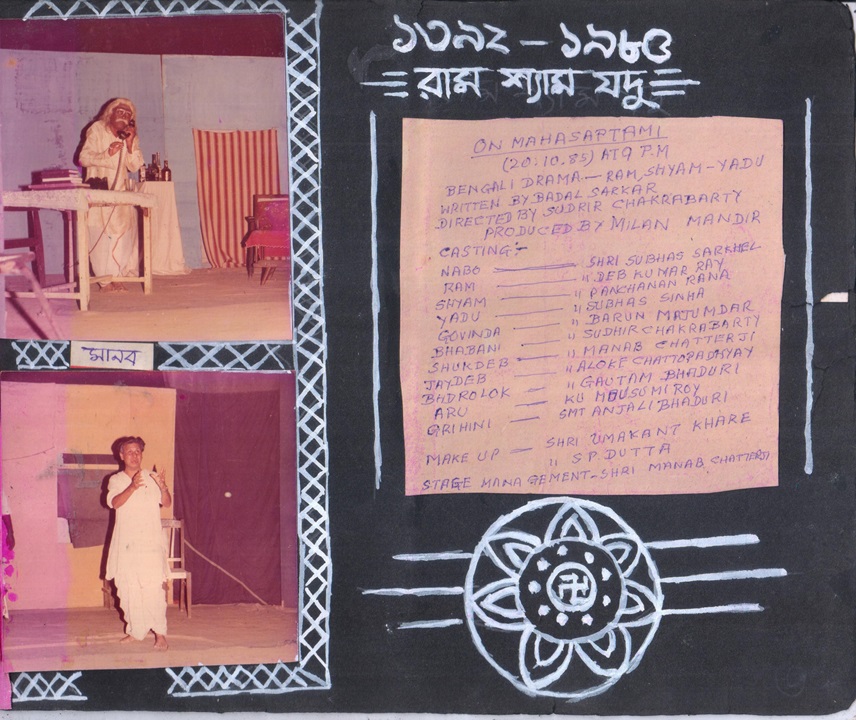 ১৩৯২ - ১৯৮৫
রাম শ্যাম যদু
ON MAHASAPTAMI
(20.10.85) AT 9 P.M
BENGALI DRAMA - RAM, SHYAM-YADU
WRITTEN BY BADAL SARKAR
DIRECTED BY SUDRIR CHAKRABARTY
PRODUCED BY MILAN MANDIR
CASTING:-
NABO — SHRI SUBHAS SARKHEL
RAM — " DEB KUMAR RAY
SHYAM — " PANCHANAN RANA
YADU — " SUBHAS SINHA
GOVINDA — " BARUN MAJUMDAR
BHABANI — " SUDHIR CHAKRABARTY
SHUKDEB — " MANAB CHATTERJI
JAYDEB — " ALOKE CHATTOPADHYAY
BHDROLOK — " GAUTAM BHADURI
ARU — KU MOUSUMI ROY
GRIHINI — SMT ANJALI BHADURI
MAKE UP — SHRI UMAKANT KHARE
" S P. DUTTA
STAGE MANAGEMENT - SHRI MANAB CHATTERJI
মানব